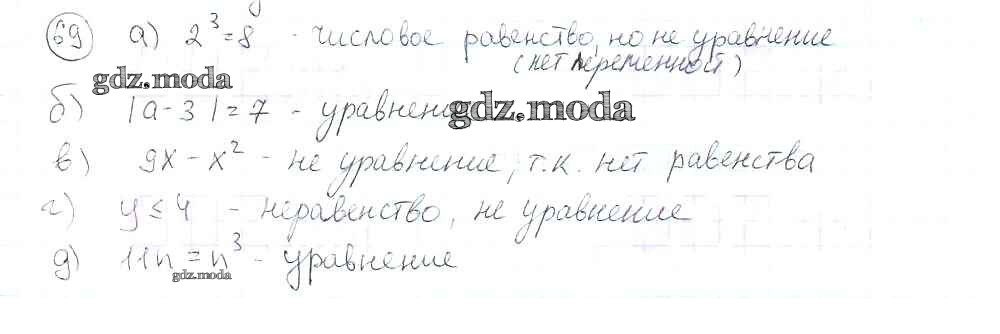 69 а) 2³=8 - числовое равенство, но не уравнение
(нет переменной)
gdz.moda
б) |a-3|=7 - уравнение
gdz.moda
в) 9x-x² - не уравнение, т.к. нет равенства
г) y≤4 - неравенство, не уравнение
д) 11n=n³ - уравнение
gdz.moda